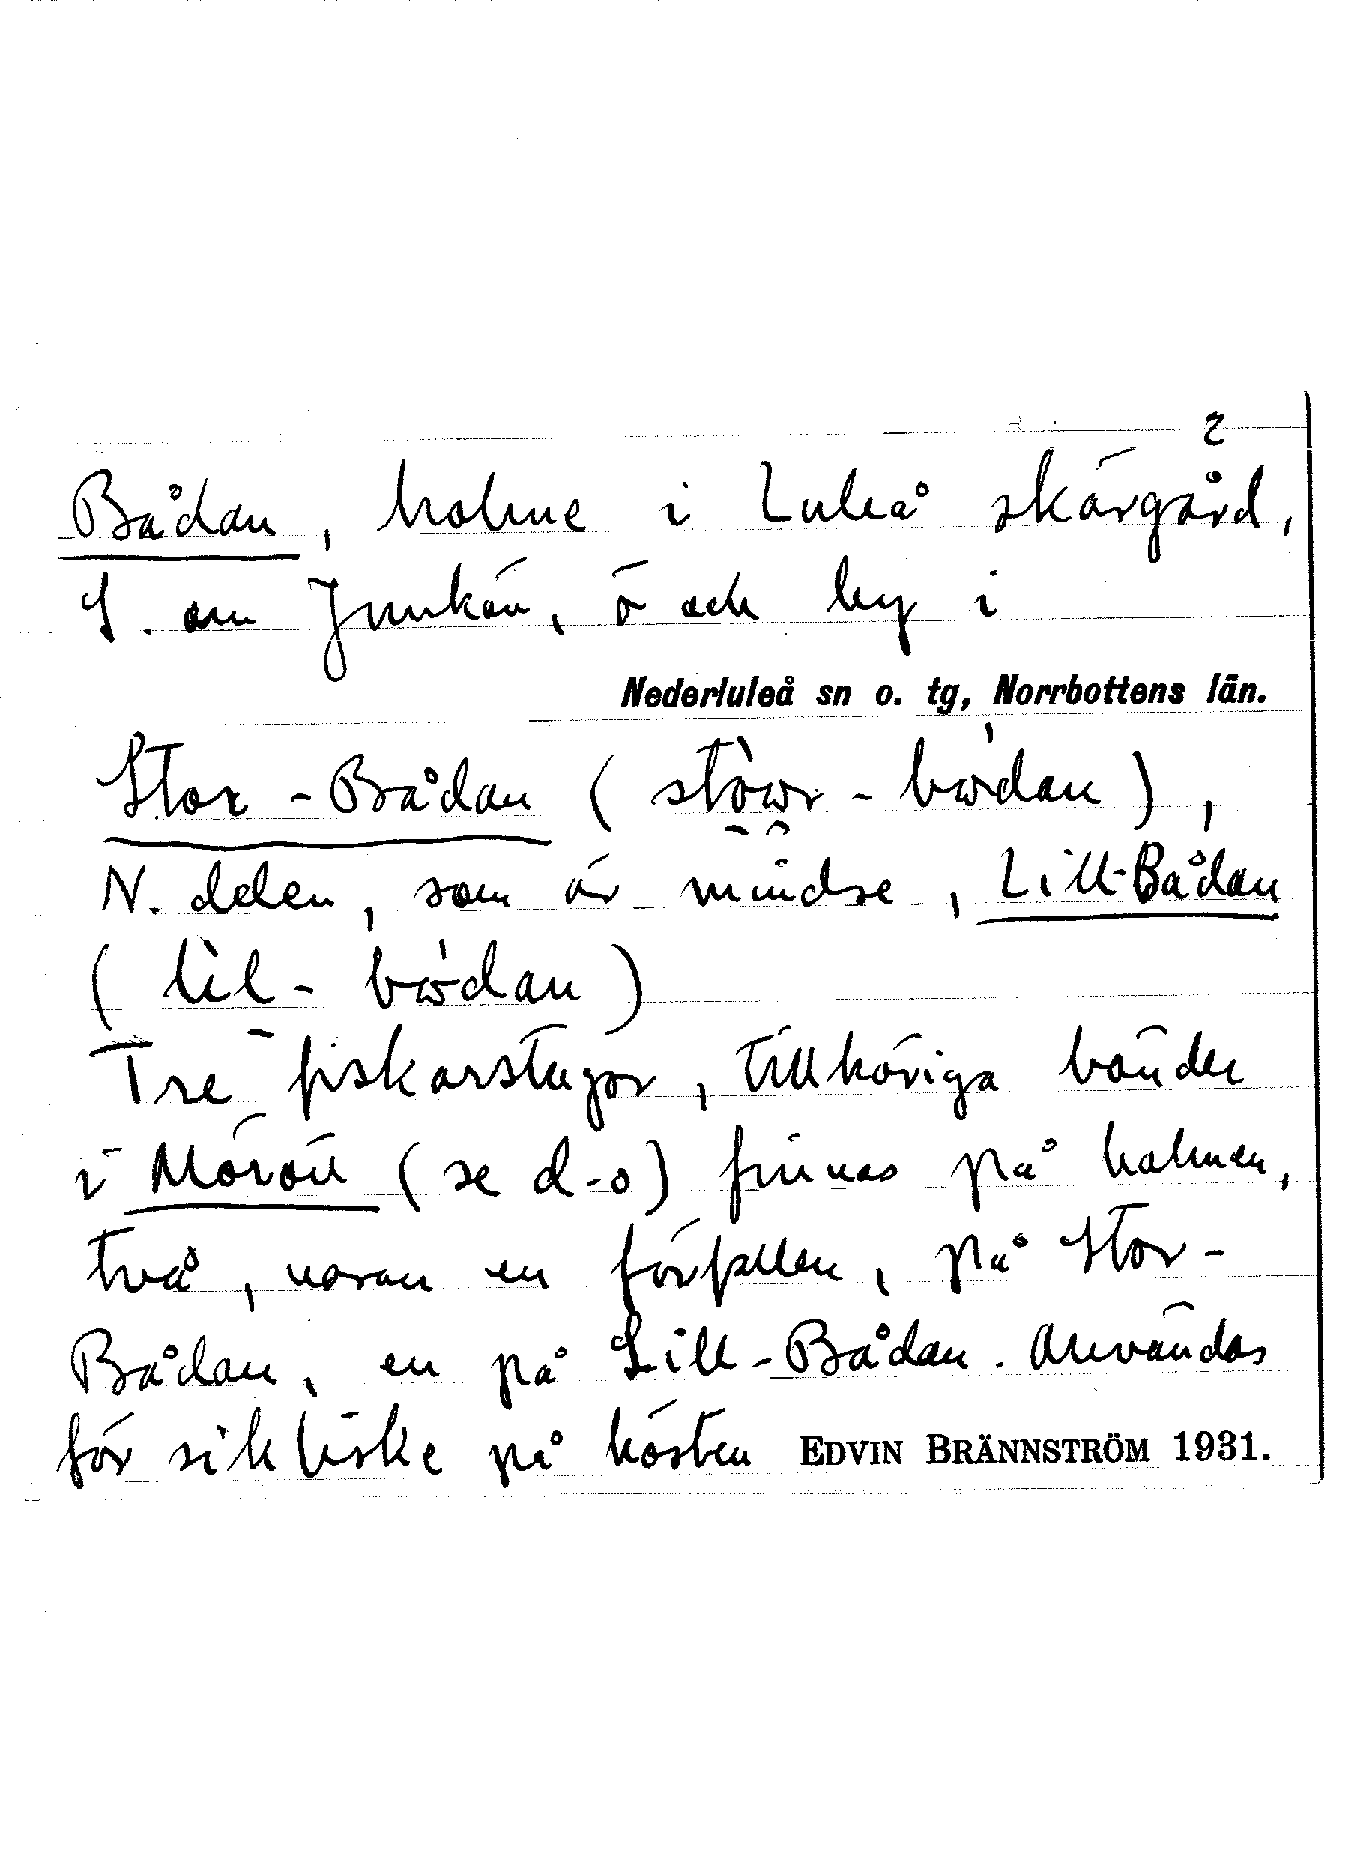 2
Bådan, holme i Luleå skärgård,
S. om Junkön, ö och by i
Nederluleå sn o. tg, Norrbottens län.
Stor-Bådan (stòwr-bẃdan),
N. delen, som är mindre, Lill-Bådan
(lìl-bẃdan)
Tre fiskarstugor, tillhöriga bönder
i Mörön (se d-o) finnas på holmen,
två, varav en förfallen, på Stor-
Bådan, en på Lill-Bådan. Användas
för sikfiske på hösten EDVIN BRÄNNSTRÖM 1931.